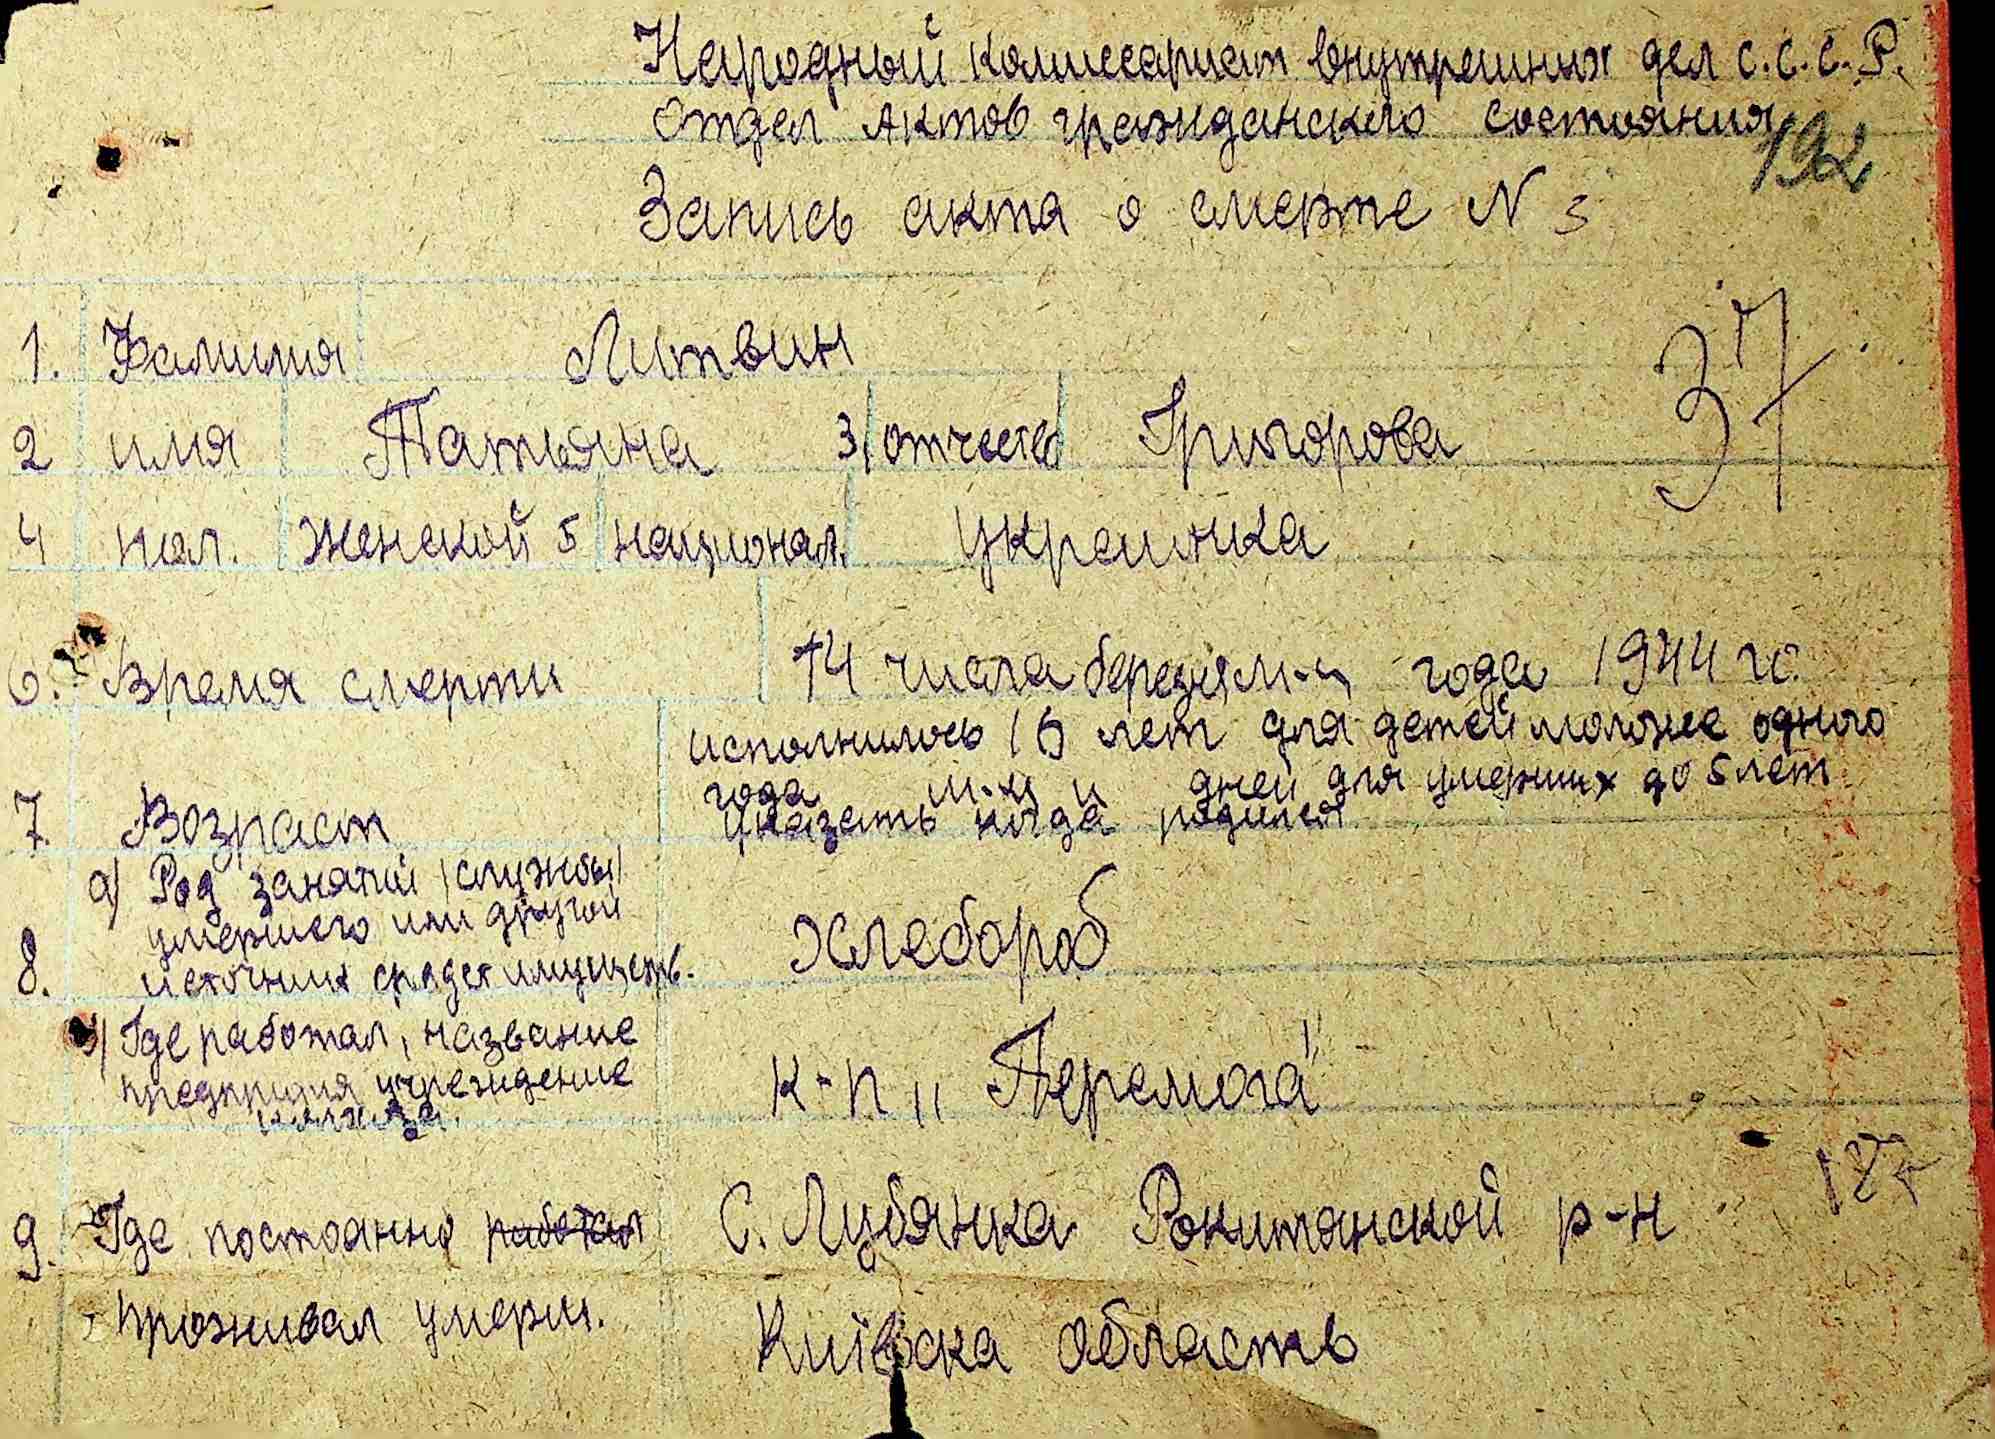 Народный комиссариат внутрешних дел С.С.С.Р.
Отдел актов гражданского состояния
192
Запись акта о смерте N 3
37
1. Фамилия Литвин
2 имя Татьяна 3/ отчество Григорова
4 пол. Женской 5 национал. Украинка
6. Время смерти 14 числа березня м-ц года 1944 го.
исполнилось 16 лет для детей моложе одного
года м-ц и дней для умерших до 5 лет
7. Возраст указать когда родился
а) Род занятий (службы)
умершего или другой
8. источник средст имуществ. Хлебороб
Где работал, название
учреждение
к-п „Перемога"
127
9. Где постоянно работал С. Лубянка Рокитянской р-н
проживал умерш. Київска область